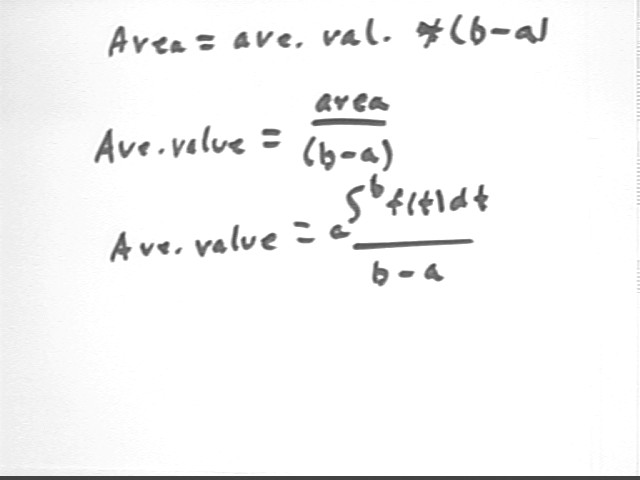 Area = ave. val. *(b-a)
Ave. value = area/(b-a)
Ave. value = a∫b f(t)dt / b-a